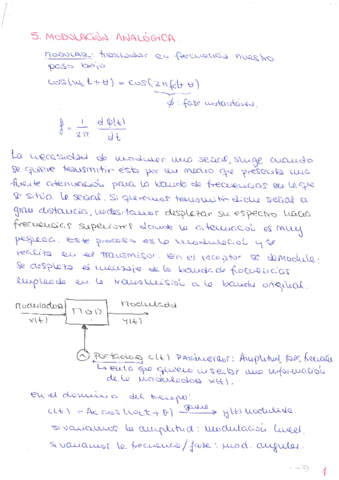 5. MODULACIÓN ANALÓGICA
MODULAR: trasladar en frecuencia nuestro
paso bajo
cos(ωc t + θ) = cos(2πfct + θ)
φ: fase instantánea.
f = 1/2π dφ(t)/dt
La necesidad de modular una señal, surge cuando
se quiere transmitir esta por un medio que presenta una
fuerte atenuación para la banda de frecuencias en la que
se sitúa la señal. Si queremos transmitir dicha señal a
gran distancia, necesitamos desplazar su espectro hacia
frecuencias superiores donde la atenuación es muy
pequeña. Este proceso es la modulación y se
realiza en el transmisor. En el receptor se demodula:
se desplaza el mensaje de la banda de frecuencias
empleada en la transmisión a la banda original.
Moduladora MOD Modulada
x(t) y(t)
Portadora c(t) Parámetros: Amplitud, fase, frecuencia
↳ En la que quiero insertar una información
de la moduladora x(t).
En el dominio del tiempo:
c(t) = Ac cos(ωct + θ) → y(t) modulada.
si variamos la amplitud: modulación lineal.
si variamos la frecuencia/fase: mod. angular.
1